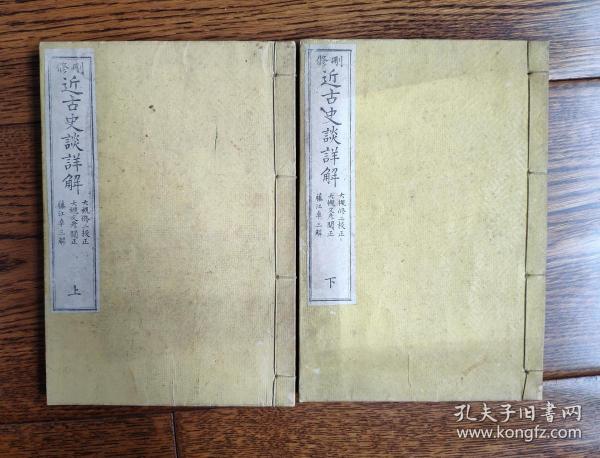 刪修
近古史談詳解
大槻修二校正
大槻文彦閱正
藤江卓三解
上
刪修
近古史談詳解
大槻修二校正
大槻文彦閱正
藤江卓三解
下
孔夫子旧书网
www.kongfz.com